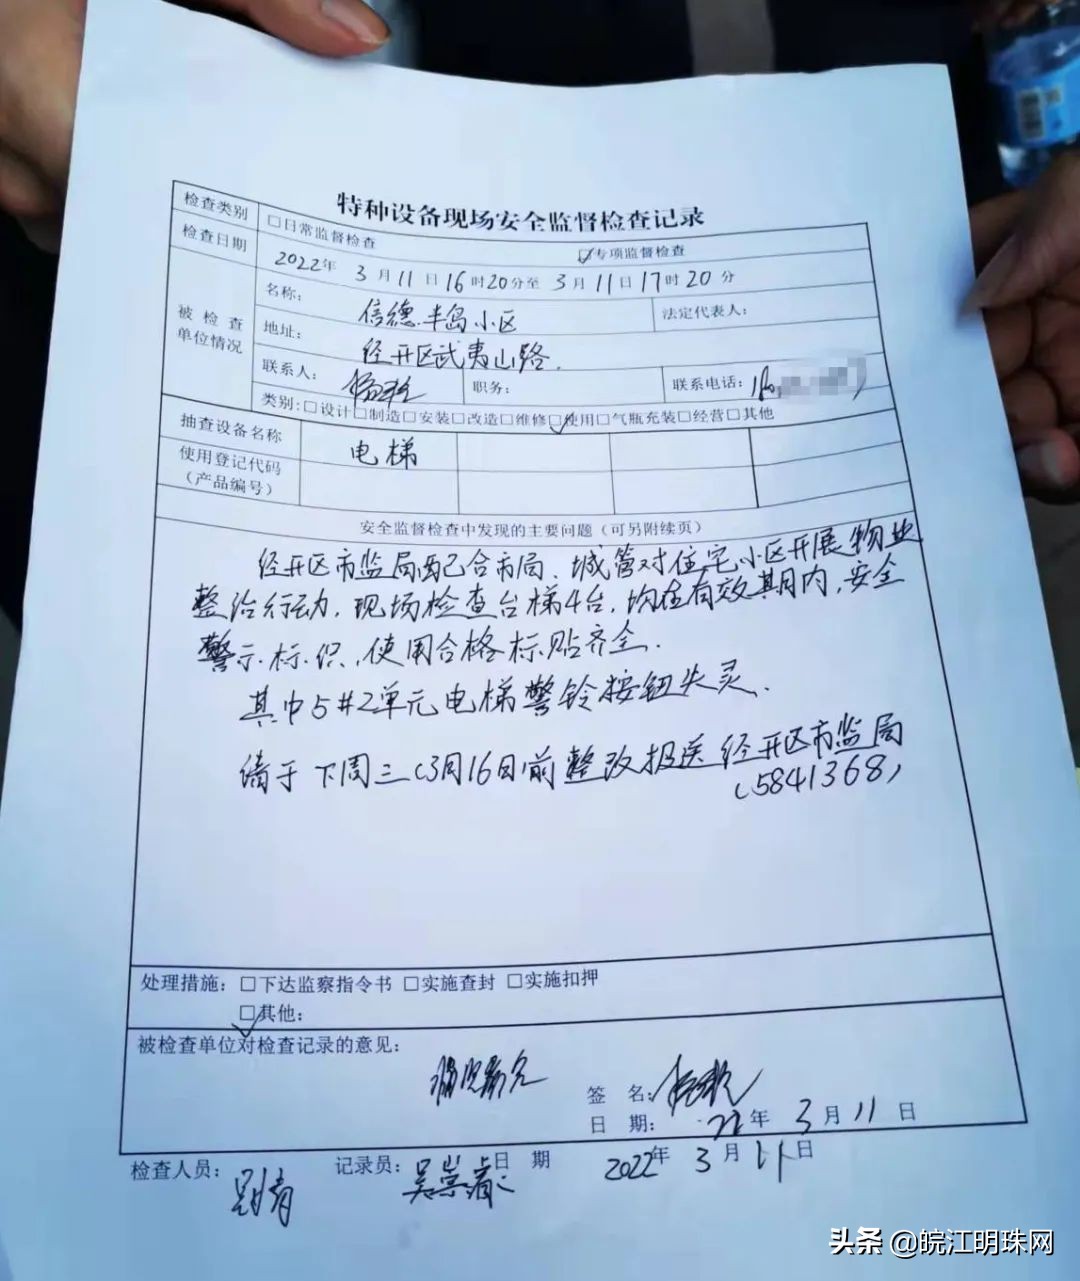 特种设备现场安全监督检查记录
检查类别 □日常监督检查 ☑专项监督检查
检查日期 2022年 3月11日16时20分至 3月11日17时20分
被检查单位情况
名称： 信德半岛小区 法定代表人：
地址： 经开区武夷山路.
联系人： 职务： 联系电话：
类别：□设计□制造□安装□改造□维修☑使用□气瓶充装□经营□其他
抽查设备名称 电梯
使用登记代码
（产品编号）
安全监督检查中发现的主要问题（可另附续页）
经开区市监局配合市局、城管对住宅小区开展物业
整治行动，现场检查台梯4台，均在有效期内，安全
警示标识，使用合格标贴齐全.
其中5#2单元电梯警铃按钮失灵.
请于下周三（3月16日前整改报送经开区市监局
（5841368）
处理措施：□下达监察指令书 □实施查封 □实施扣押
☑其他：
被检查单位对检查记录的意见：
签 名：
日 期： 22年 3月11日
检查人员： 记录员： 日 期 2022年 3月11日
头条 @皖江明珠网